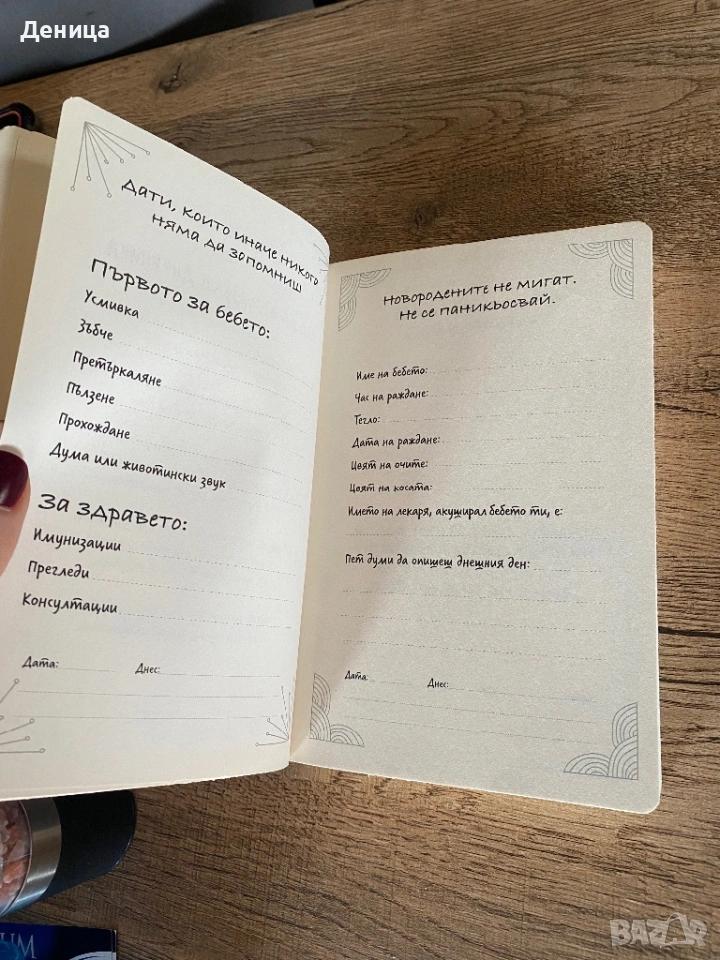 Деница
Дати, които иначе никога
няма да запомниш
Първото за бебето:
Усмивка
Зъбче
Претъркаляне
Пълзене
Прохождане
Дума или животински звук
За здравето:
Имунизации
Прегледи
Консултации
Дата:
Днес:
Новородените не мигат.
Не се паникьосвай.
Име на бебето:
Час на раждане:
Тегло:
Дата на раждане:
Цвят на очите:
Цвят на косата:
Името на лекаря, акуширал бебето ти, е:
Пет думи да опишеш днешния ден:
Дата:
Днес:
UM
BAZAR